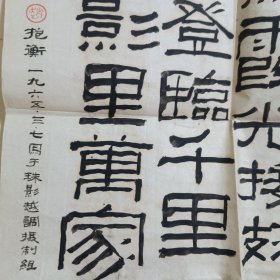 霞光接
登臨千里
影里萬家
抱衡一九六五三七写于珠影越調摄制組